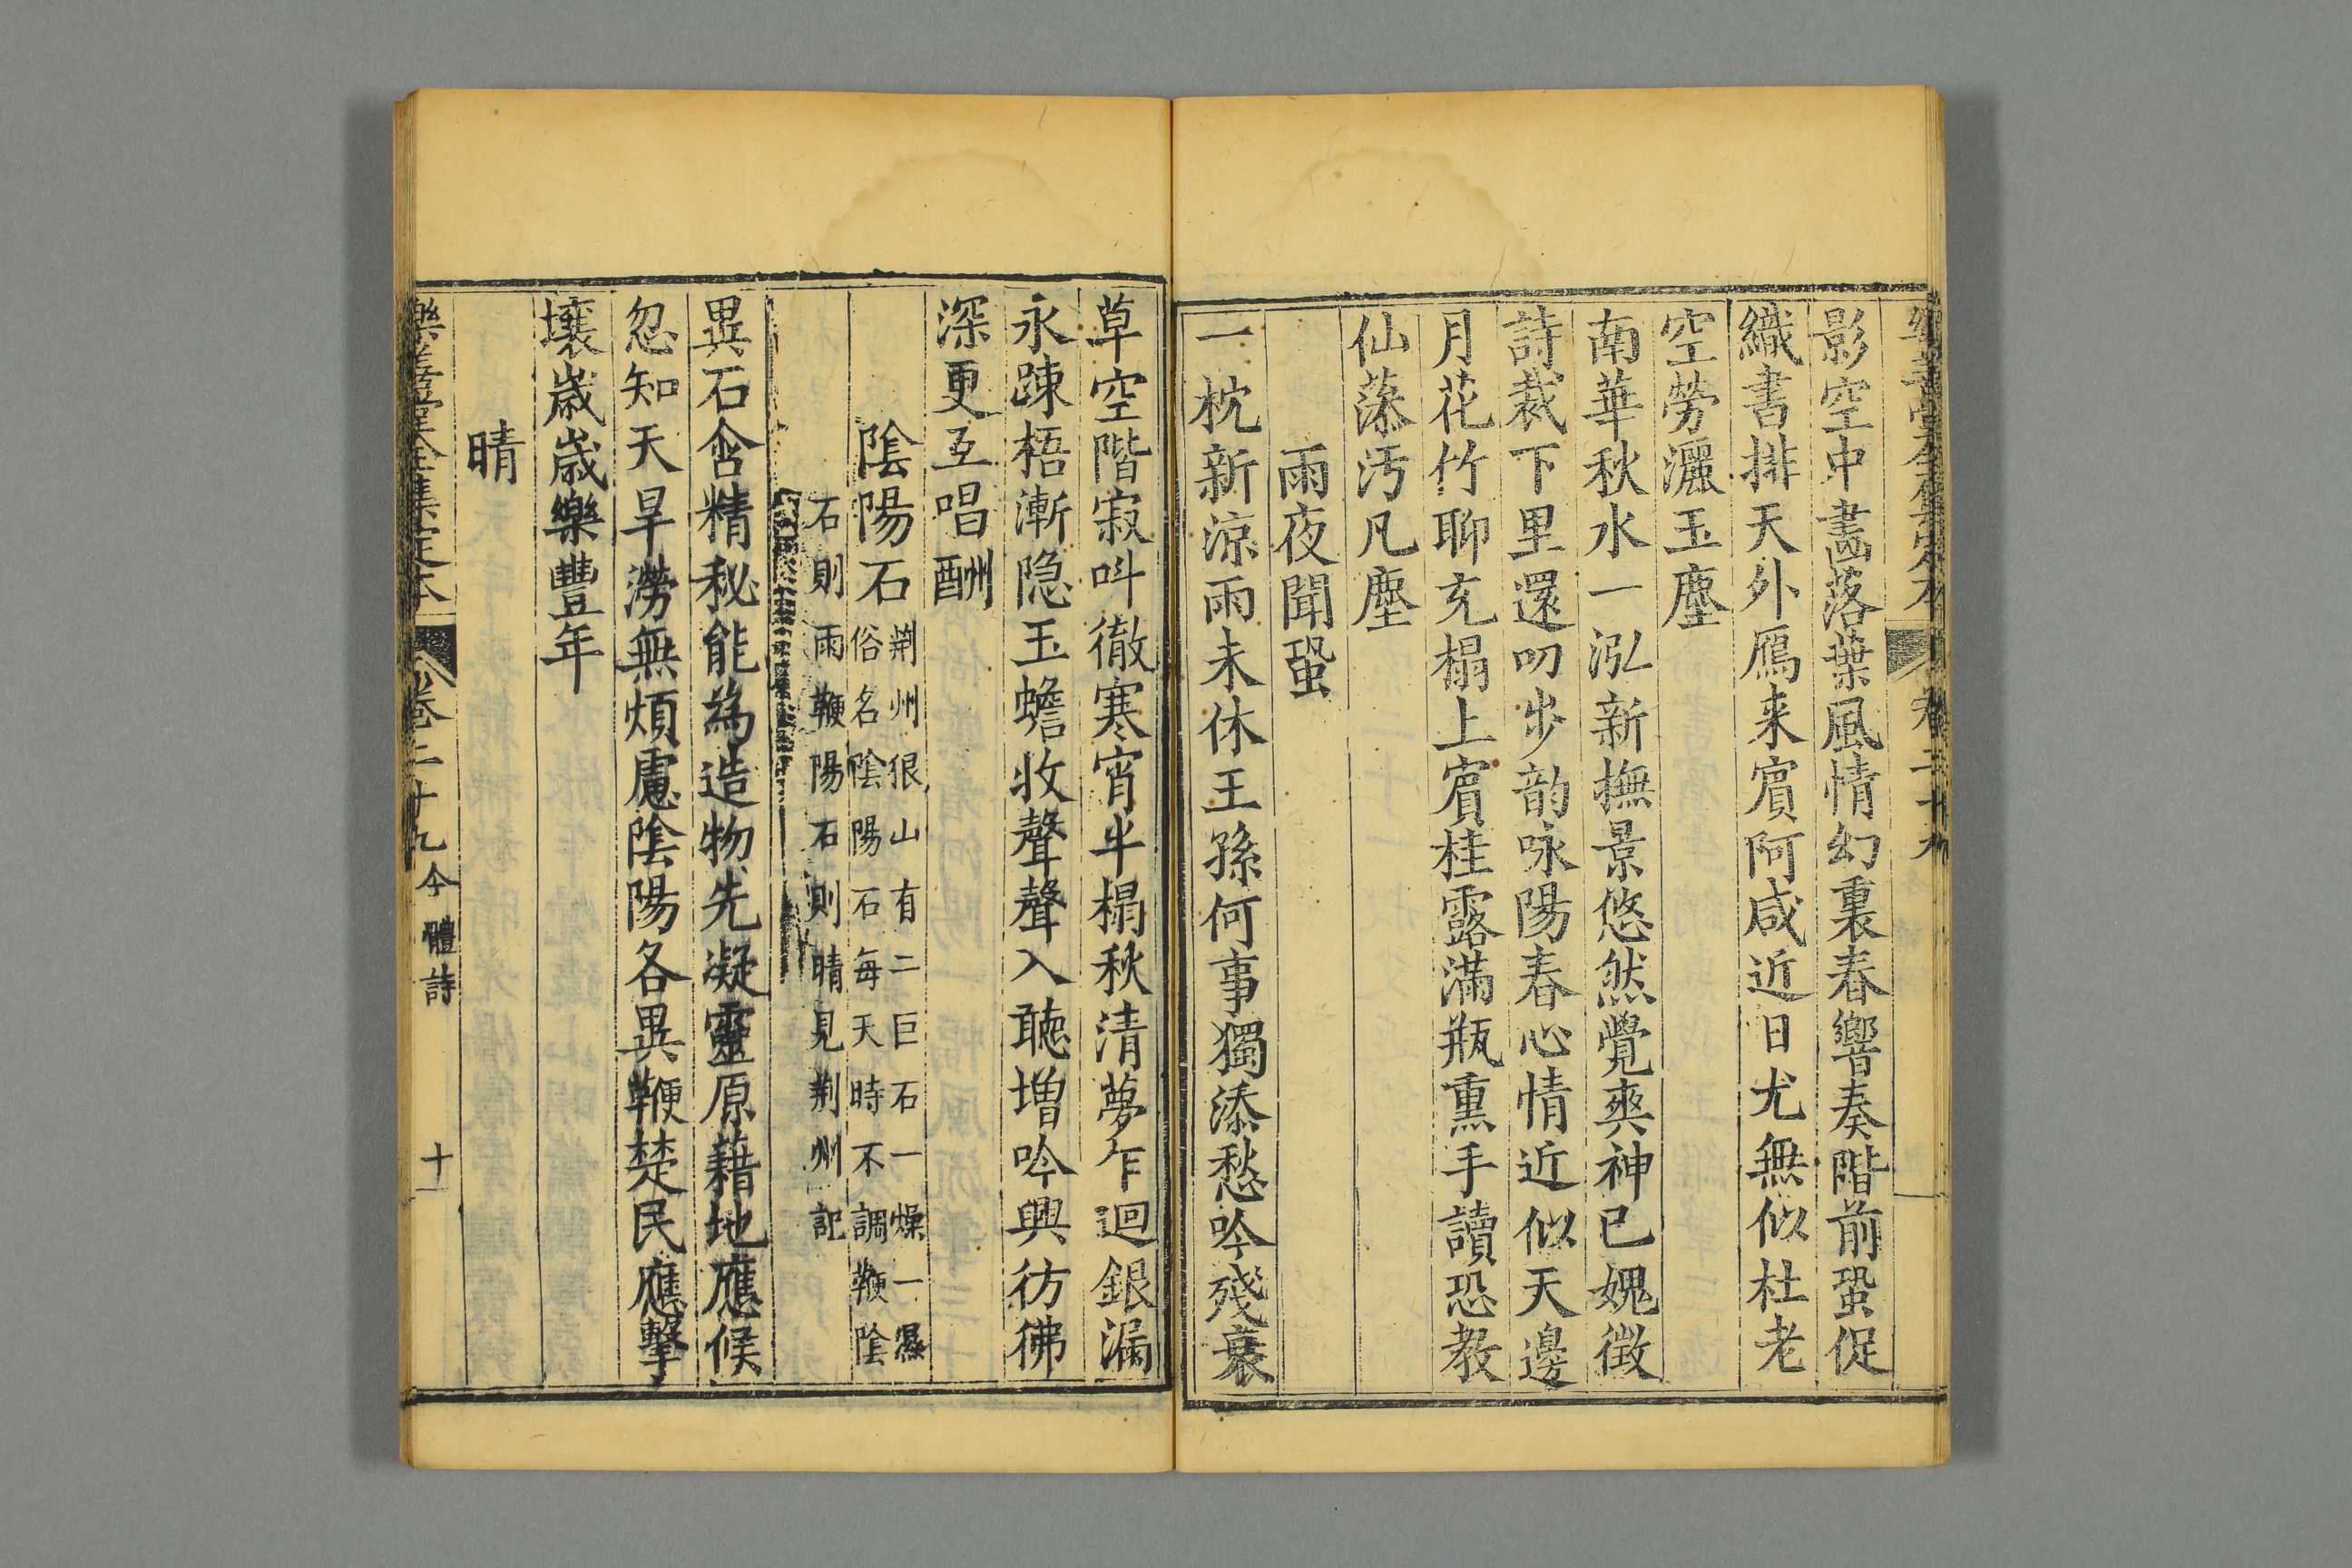 樂善堂全集定本 卷二十九
影空中畵落葉風情幻裏春響奏階前蛩促
織書排天外鴈来賓阿咸近日尤無似杜老
空勞灑玉塵
南華秋水一泓新撫景悠然覺爽神已媿徴
詩裁下里還叨步韵咏陽春心情近似天邊
月花竹聊充榻上賓桂露滿瓶熏手讀恐教
仙蘂汚凡塵
雨夜聞蛩
一枕新涼雨未休王孫何事獨添愁吟殘衰
草空階寂呌徹寒宵半榻秋清夢乍迴銀漏
永踈梧漸隐玉蟾收聲聲入聴增吟興彷彿
深更互唱酬
陰陽石
荆州佷山有二巨石一燥一濕
俗名陰陽石每天時不調鞭陰
石則雨鞭陽石則晴見荆州記
異石含精秘能為造物先凝靈原藉地應候
忽知天旱澇無煩慮陰陽各異鞭楚民應擊
壤歲歲樂豐年
晴
樂善堂全集定本 卷二十九 今體詩 十